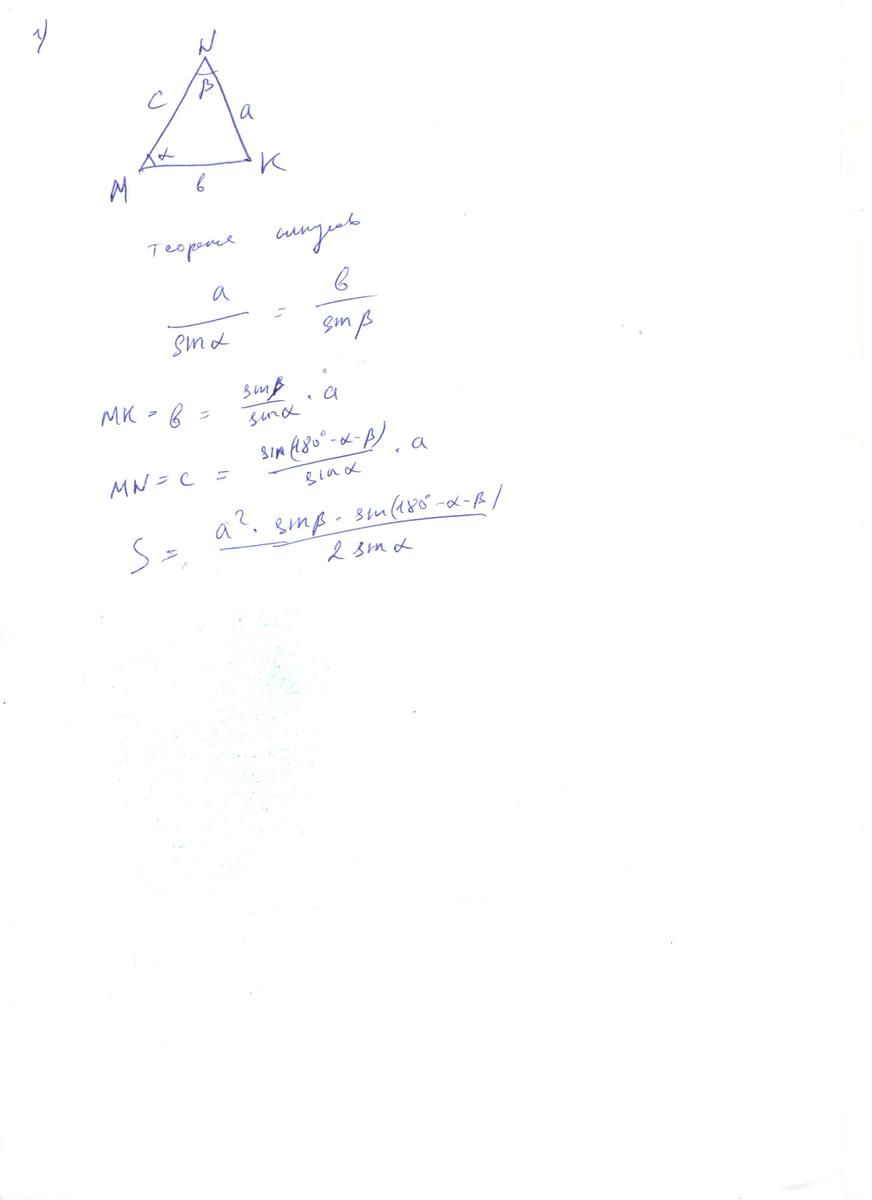 1)
N
β
c
a
α
M
K
в
теорема синусов
a / sin α = в / sin β
MK = в = sin β / sin α · a
MN = c = sin(180° - α - β) / sin α · a
S = a² · sin β · sin(180° - α - β) / 2 sin α